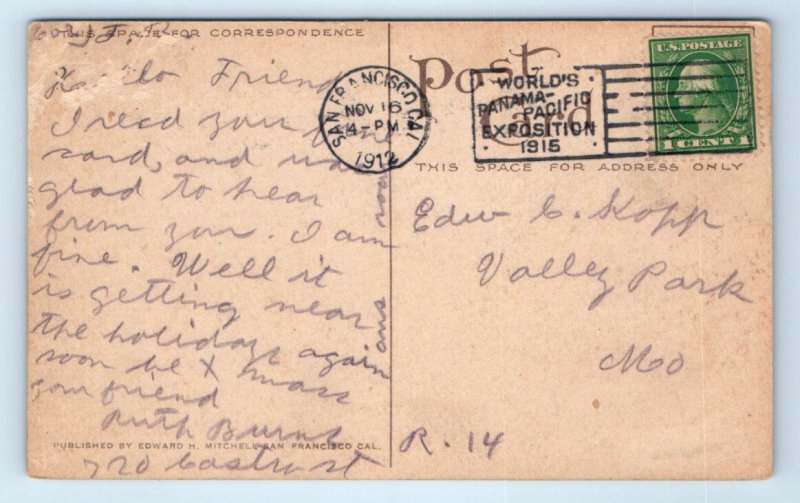 THIS SPACE FOR CORRESPONDENCE
Friend
I recd your
card, and was
glad to hear
from you. I am
fine. Well it
is getting near
the holidays again
soon be X mass
your friend
Ruth Burns
PUBLISHED BY EDWARD H. MITCHELL SAN FRANCISCO CAL.
720 Castro st
ans
SAN FRANCISCO, CAL.
NOV 16
4-PM
1912
WORLD'S
PANAMA-
PACIFIC
EXPOSITION
1915
U.S. POSTAGE
1 CENT 1
Post
Card
THIS SPACE FOR ADDRESS ONLY
Edw C. Kopp
Valley Park
Mo
R. 14